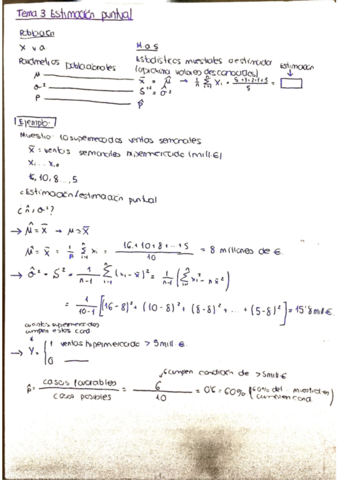 Tema 3 Estimación puntual
Población
X v.a
M.a.s
Parámetros poblacionales
Estadísticos muestrales o estimadores
(aproxima valores desconocidos)
Estimación
μ x̄ = μ̂ → 1/n Σ xi =
σ² S² = σ̂²
P p̂
Ejemplo:
Muestra: 10 supermercados ventas semanales
x̄ = ventas semanales hipermercado (mill €)
x1 ... x10
6, 10, 8 ..., 5
¿Estimación/estimación puntual
→ μ̂ = x̄ → μ = x̄
μ̂ = x̄ = 1/n Σ xi = 16+10+8+...+5 / 10 = 8 millones de €
→ σ̂² = S² = 1/n-1 Σ (xi - x̄)² = 1/n-1 (Σ xi² - n x̄²)
= 1/10-1 [(16-8)² + (10-8)² + (8-8)² + ... + (5-8)²] = 15'8 mll €
cuantos supermercados
cumplen estas cond
→ Y = { 1 ventas hipermercado > 5 mill €
0
6 cumplen condición de > 5 mill €
p̂ = casos favorables / casos posibles = 6 / 10 = 0'6 = 60%